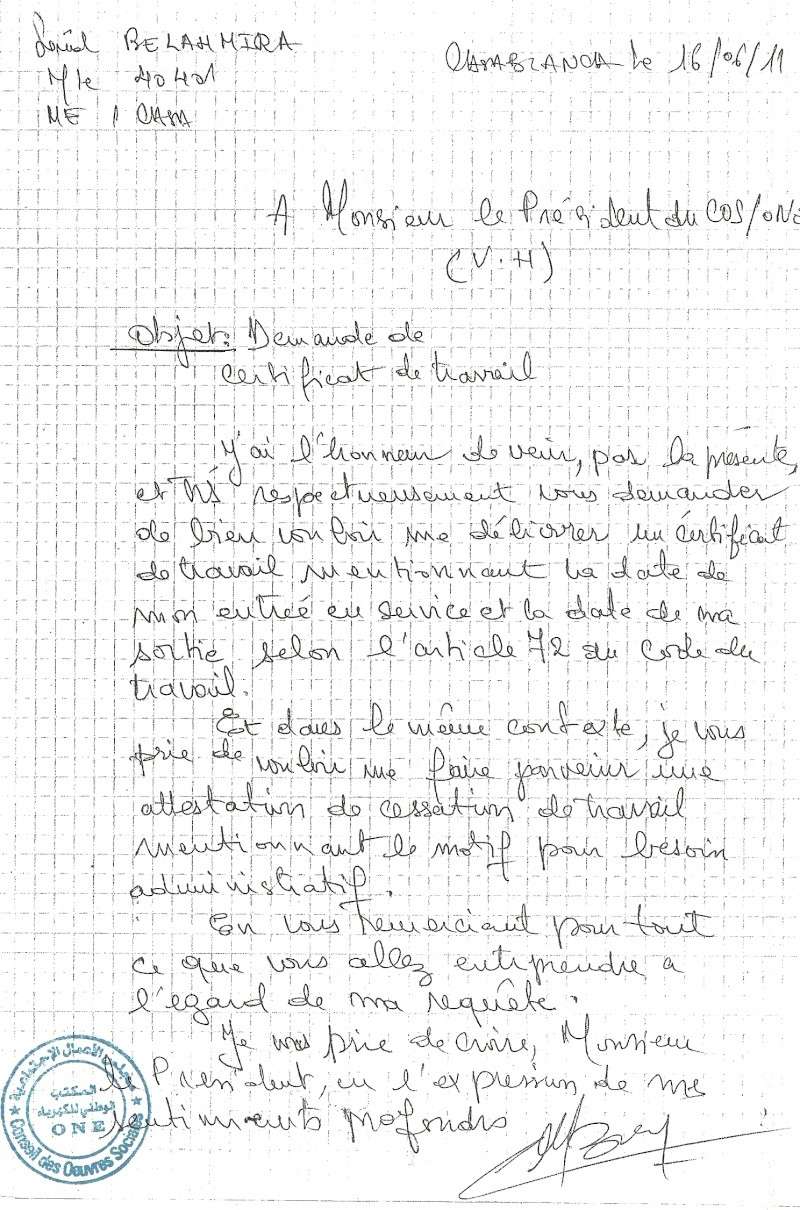 BELAHMIRA
Mle 40401
ME / CASA
CASABLANCA le 16/06/11
A Monsieur le Président du COS/ONE
(V.H)
Objet: Demande de
certificat de travail
J'ai l'honneur de venir, par la présente,
et très respectueusement vous demander
de bien vouloir me délivrer un certificat
de travail mentionnant la date de
mon entrée en service et la date de ma
sortie selon l'article 72 du Code du
travail.
Et dans le même contexte, je vous
prie de vouloir me faire parvenir une
attestation de cessation de travail
mentionnant le motif pour besoin
administratif.
En vous remerciant pour tout
ce que vous allez entreprendre a
l'egard de ma requête.
Je vous prie de croire, Monsieur
le Président, en l'expression de mes
sentiments profonds
مجلس الأعمال الإجتماعية
المكتب
الوطني للكهرباء
ONE
Conseil des Oeuvres Sociales